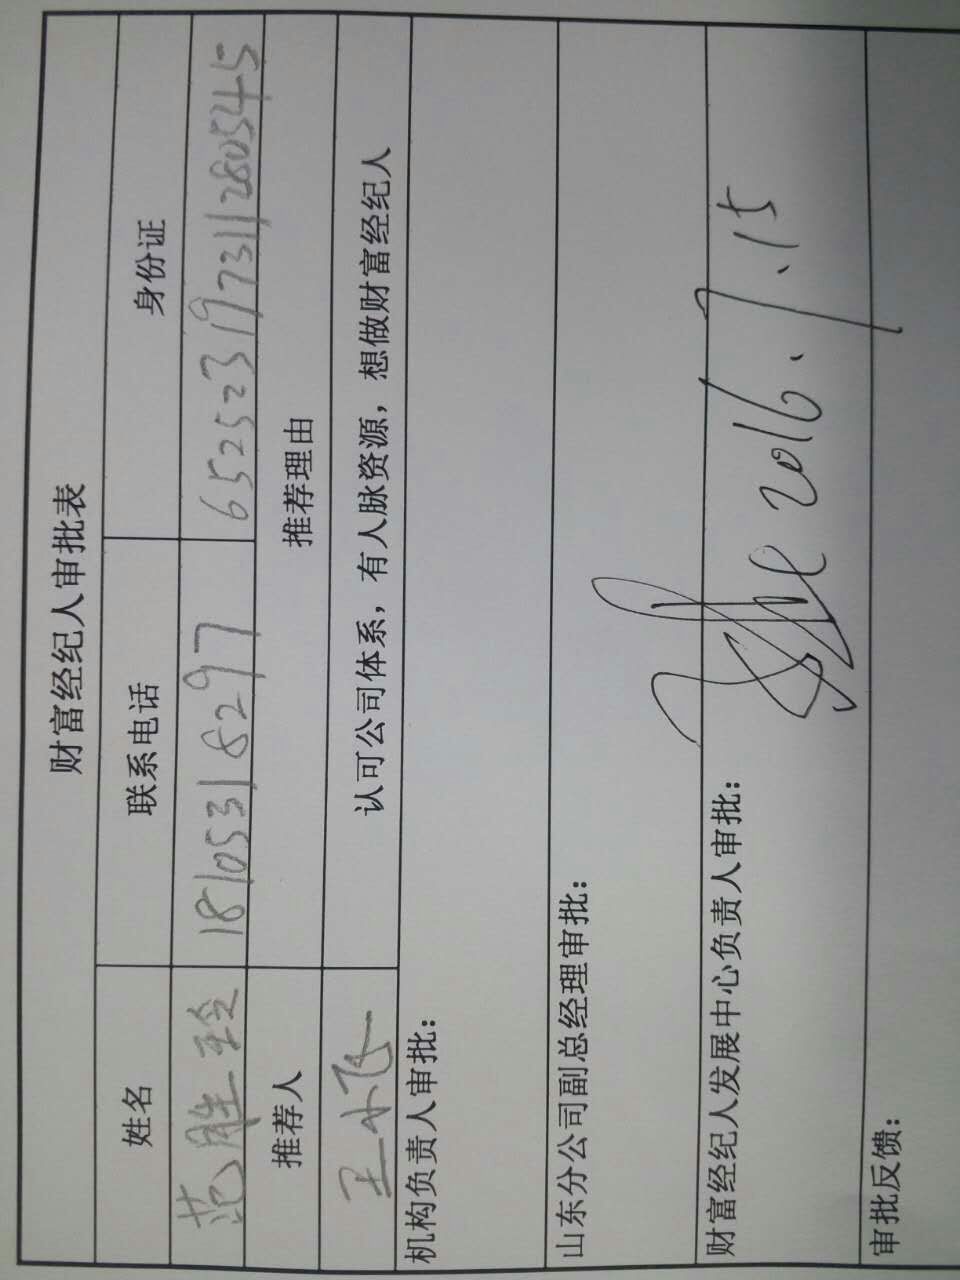 财富经纪人审批表
姓名 联系电话 身份证
范胜玲 18105318297 652523197311280545
推荐人 推荐理由
王小飞 认可公司体系，有人脉资源，想做财富经纪人
机构负责人审批：
山东分公司副总经理审批：
财富经纪人发展中心负责人审批：
2016.7.15
审批反馈：